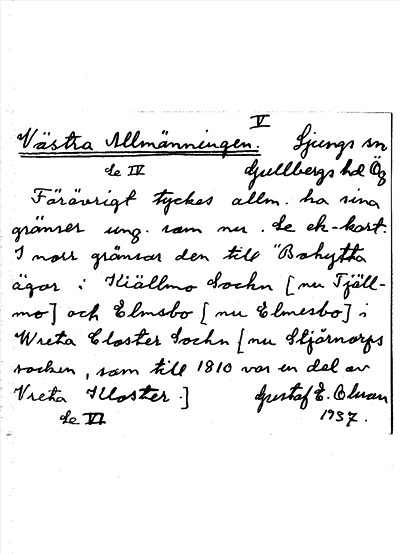 V
Västra Allmänningen. Ljungs sn
Se IV Gullbergs hd Ög
Förövrigt tyckes allm. ha sina
gränser ung. som nu. Se ek-kart.
I norr gränsar den till "Bohytta
ägor i Kiällmo Sochn [nu Tjäll-
mo] och Elmsbo [nu Elmesbo] i
Wreta Closter Sochn [nu Stjärnorps
socken, som till 1810 var en del av
Vreta Kloster.] Gustaf E. Olsson
Se VI 1937.